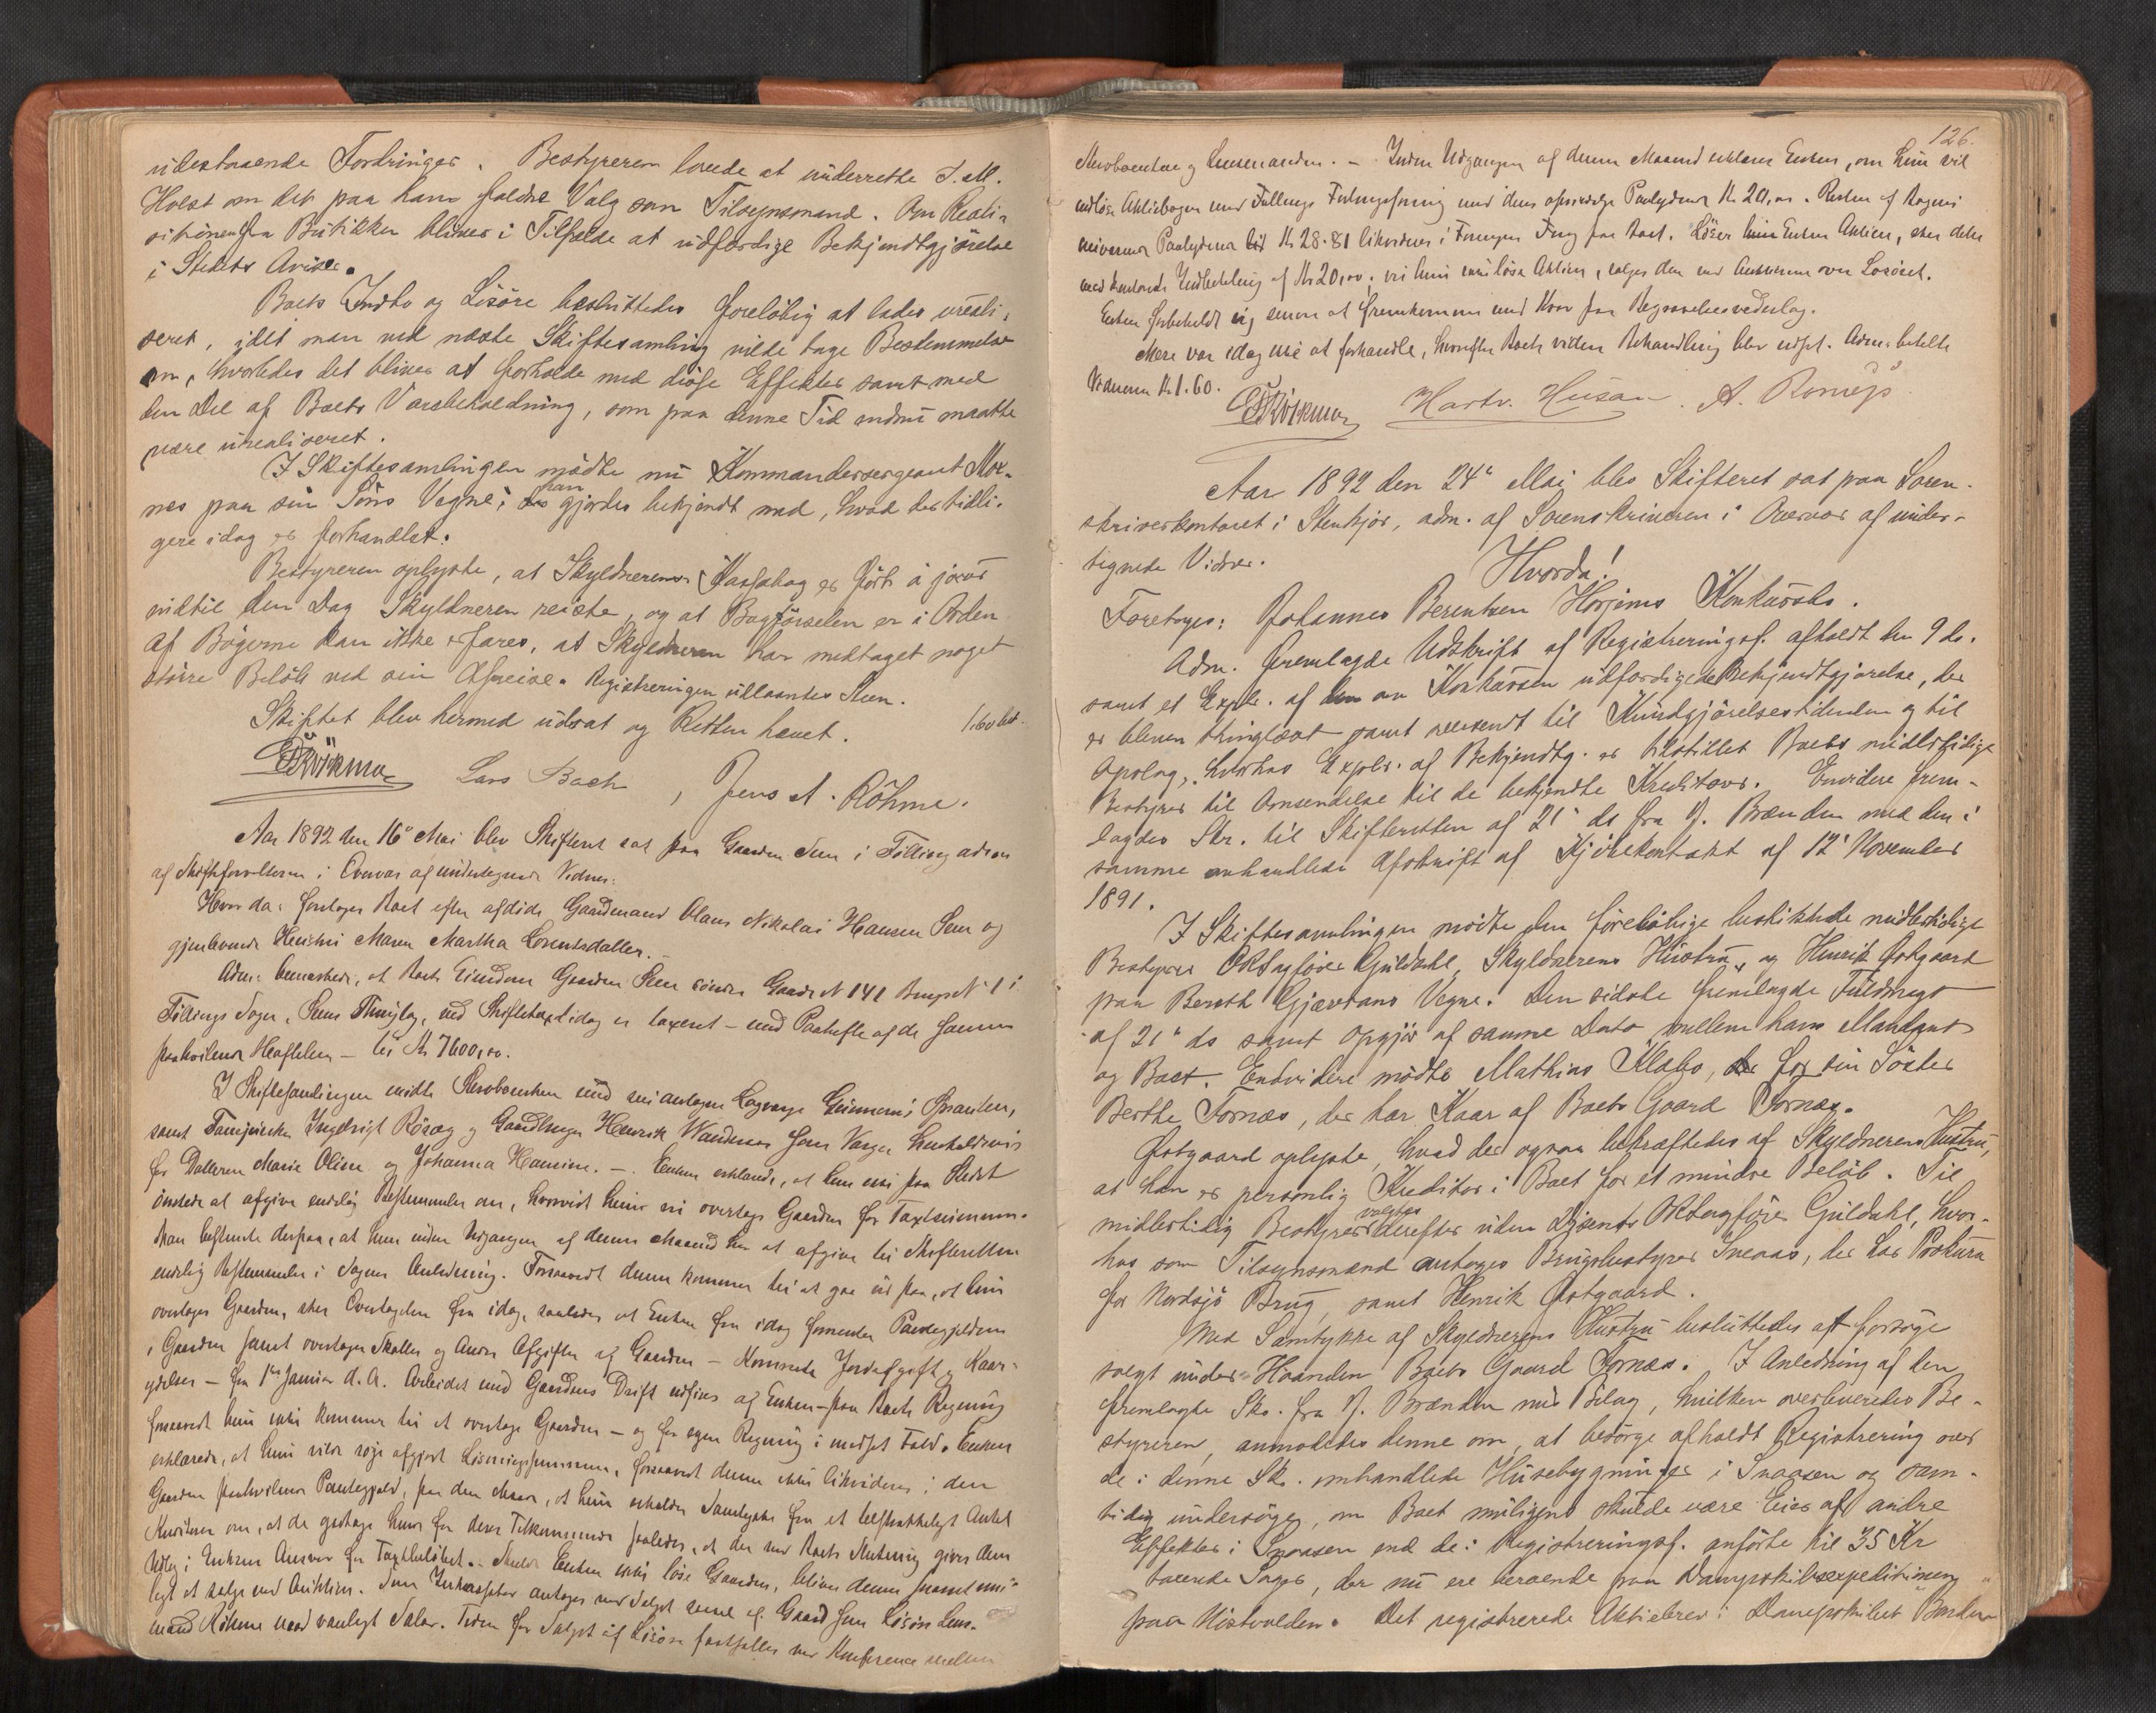 udestaaende Fordringer. Bestyreren lovede at underrette J. M.
Holst om det paa ham faldne Valg som Tilsynsmand. Om Reali-
sitionen fra Butikken bliver i Tilfælde at udfærdige Bekjendtgjörelse
i Stedets Aviser.
Boets Indbo og Lösöre besluttedes foreløbig at lades ureali-
seret, idet man ved næste Skiftesamling vilde tage Bestemmelse
om, hvorledes det bliver at forholde med disse Effekter samt med
den Del af Boets Varebeholdning, som paa denne Tid endnu maatte
være urealiseret.
I Skiftesamlingen mödte nu Kommandersergeant Moe-
nes paa sin Söns Vegne; han gjordes bekjendt med, hvad der tidli-
gere idag er forhandlet.
Bestyreren oplyste, at Skyldnerens Kassabog er fört à jour
indtil den Dag Skyldneren reiste, og at Bogförselen er i Orden.
Af Bögerne kan ikke erfares, at Skyldneren har medtaget noget
större Belöb ved sin Afreise. Registreringen udlaantes Steen.
Skiftet blev hermed udsat og Retten hævet. 1.60 bet.
Lars Bach, Jens A. Röhme.
Aar 1892 den 16de Mai blev Skifteret sat paa Gaarden Sem i Fölling adm.
af Skifteforvalteren i Overvær af undertegnede Vidner:
Hvor da: foretoges Boet efter afdöde Gaardmand Olaus Nikolai Hansen Sem og
gjenlevende Hustru Maren Martha Lorentsdatter.
Adm. bemærkede, at Boets Eiendom Gaarden Sem söndre Gaards N 141 Brugs N 1 i
Föllings Sogn, Stens Thinglag, ved Skiftetaxt idag er taxeret – med Paahefte af de samme
paahvilende Heftelser – til Kr 7600,00.
I Skiftesamlingen mödte Stervboenken med sin antagne Lagværge
samt Ingebrigt og Gaardbruger Henrik som Værger henholdsvis
for Döttrene Marie Oline og Johanna Hansine. – Enken erklærede, at hun nu paa Stedet
önskede at afgive endelig Bestemmelse om, hvorvidt hun vil overtage Gaarden for Taxtsummen.
Man bestemte derpaa, at hun inden Udgangen af denne Maaned har at afgive til Skifteretten
endelig Bestemmelse i Sagens Anledning. Forsaavidt denne kommer til at gaa ud paa, at hun
overtager Gaarden, sker Overtagelsen fra idag, saaledes at Enken fra idag forrenter Pantegjælden
i Gaarden samt overtager Skatter og andre Afgifter af Gaarden – Kaar-
ydelser – fra 1ste Januar d. A. Arbeidet med Gaardens Drift udföres af Enken – for Boets Regning
forsaavidt hun ikke kommer til at overtage Gaarden – og for egen Regning i modsat Fald. Enken
erklærede, at hun vilde söge afgjort Lösningssummen, forsaavidt denne ikke likvideres i den
Gaarden paahvilende Pantegjæld, paa den Maade, at hun erholder Samtykke fra et tilstrækkeligt Antal
Kreditorer om, at de godtage hende for deres Tilkommende saaledes, at der ved Boets Slutning gives dem
Udlæg i Enkens Ansvar for Taxtbelöbet. – Skulde Enken ikke löse Gaarden, bliver denne snarest mu-
ligt at sælge ved Auktion. Som Inkassator antages ved Salget saavel af Gaard som Lösöre Lens-
mand Röhme mod vanligt Salær. Tiden for Salget af Lösöre fastsættes ved Konference mellem
126.
Stervboenken og Lensmanden. – Inden Udgangen af denne Maaned erklærer Enken, om hun vil
indlöse Aktiebogen med Föllings Forbrugsforening med dens opindebaarne Paalydende Kr. 20,00. Resten af Bogens
nuværende Paalydende Kr 28.81 likvideres i Foreningens Krav paa Boet. Löser Enken Aktien, sker dette
med kontant Indbetaling af Kr 20,00; vil hun ikke löse Aktien, sælges den ved Auktionen over Lösöret.
Enken forbeholdt sig senere at fremkomme med Krav paa Begravelsesvederlag.
Mere var idag ikke at forhandle, hvorefter Boets videre Behandling blev udsat. Adm. betalte
Vidnerne Kr. 1.60.
Hartv. Husan. A. Romejs
Aar 1892 den 24de Mai blev Skifteret sat paa Soren-
skriverkontoret i Stenkjær, adm. af Sorenskriveren i Overvær af under-
tegnede Vidner.
Hvorda!
Foretoges: Johannes Berentsen Horjems Konkursbo.
Adm. fremlagde Udskrift af Registreringsf. afholdt den 9 ds.
samt et Expl. af den om Konkursen udfærdigede Bekjendtgjørelse, der
er bleven thinglæst samt oversendt til Kundgjörelsestidenden og til
Opslag, hvorhos Explr. af Bekjendtg. er tilstillet Boets midlertidige
Bestyrer til Omsendelse til de bekjendte Kreditorer. Envidere frem-
lagdes Skr. til Skifteretten af 21de ds fra J. Brænden med den i
samme omhandlede Afskrift af Kjöbekontrakt af 12te November
1891.
I Skiftesamlingen mödte den foreløbige beskikkede midlertidige
Bestyrer ORSagförer Guldahl, Skyldnerens Hustru, og Henrik Østgaard
paa Berith Gjævrans Vegne. Den sidste fremlagde Fuldmagt
af 21de ds samt Opgjör af samme Dato mellem hans Mandant
og Boet. Endvidere mödte Mathias Klabo, for sin Söster
Berthe Fornæs, der har Kaar af Boets Gaard Fornæs.
Østgaard oplyste, hvad der ogsaa bekræftedes af Skyldnerens Hustru,
at han er personlig Kreditor i Boet for et mindre Belöb. Til
midlertidig Bestyrer valgtes derefter uden Dissents ORSagförer Guldahl, hvor-
hos som Tilsynsmænd antoges Brugsbestyrer Sneaas, der har Prokura
for Nordsjö Brug, samt Henrik Østgaard.
Med Samtykke af Skyldnerens Hustru besluttedes at forsöge
solgt under Haanden Boets Gaard Fornæs. I Anledning af den
fremlagte Skr. fra J. Brænden med Bilag, hvilken overleveredes Be-
styreren, anmodedes denne om, at besörge afholdt Registrering over
de i denne Sk. omhandlede Husebygninger i Snaasen og sam-
tidig undersöge, om Boet muligens skulde være Eier af andre
Effekter i Snaasen end de i Registreringsf. anförte til 35 Kr
taxerede Sager, der nu ere beroende paa Dampskibsexpeditionen
paa Kvistvolden. Det registrerede Aktiebrev i Dampskibet "Borden